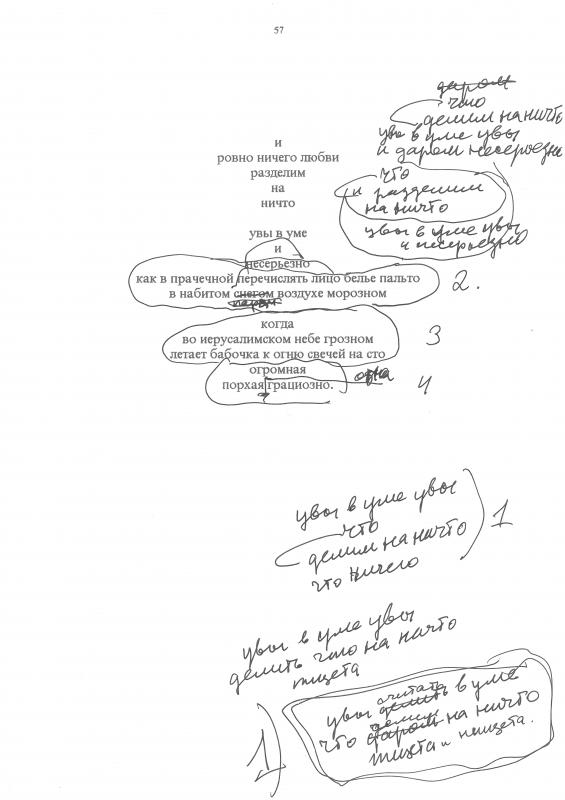 57
даром
что
делим на ничто
увы в уме увы
и даром несерьезно
и
ровно ничего любви
разделим
на
ничто
что
и разделим
на ничто
увы в уме увы
и несерьезно
увы в уме
и
несерьезно
как в прачечной перечислять лицо белье пальто
2.
в набитом снегом воздухе морозном
паром
когда
во иерусалимском небе грозном
3
летает бабочка к огню свечей на сто
огромная
одна
порхая грациозно.
4
увы в уме увы
что
1
делим на ничто
что ничего
увы в уме увы
делить что на ничто
тщета
считать
увы делить в уме
делим
что даром на ничто
тщета и нищета.
1